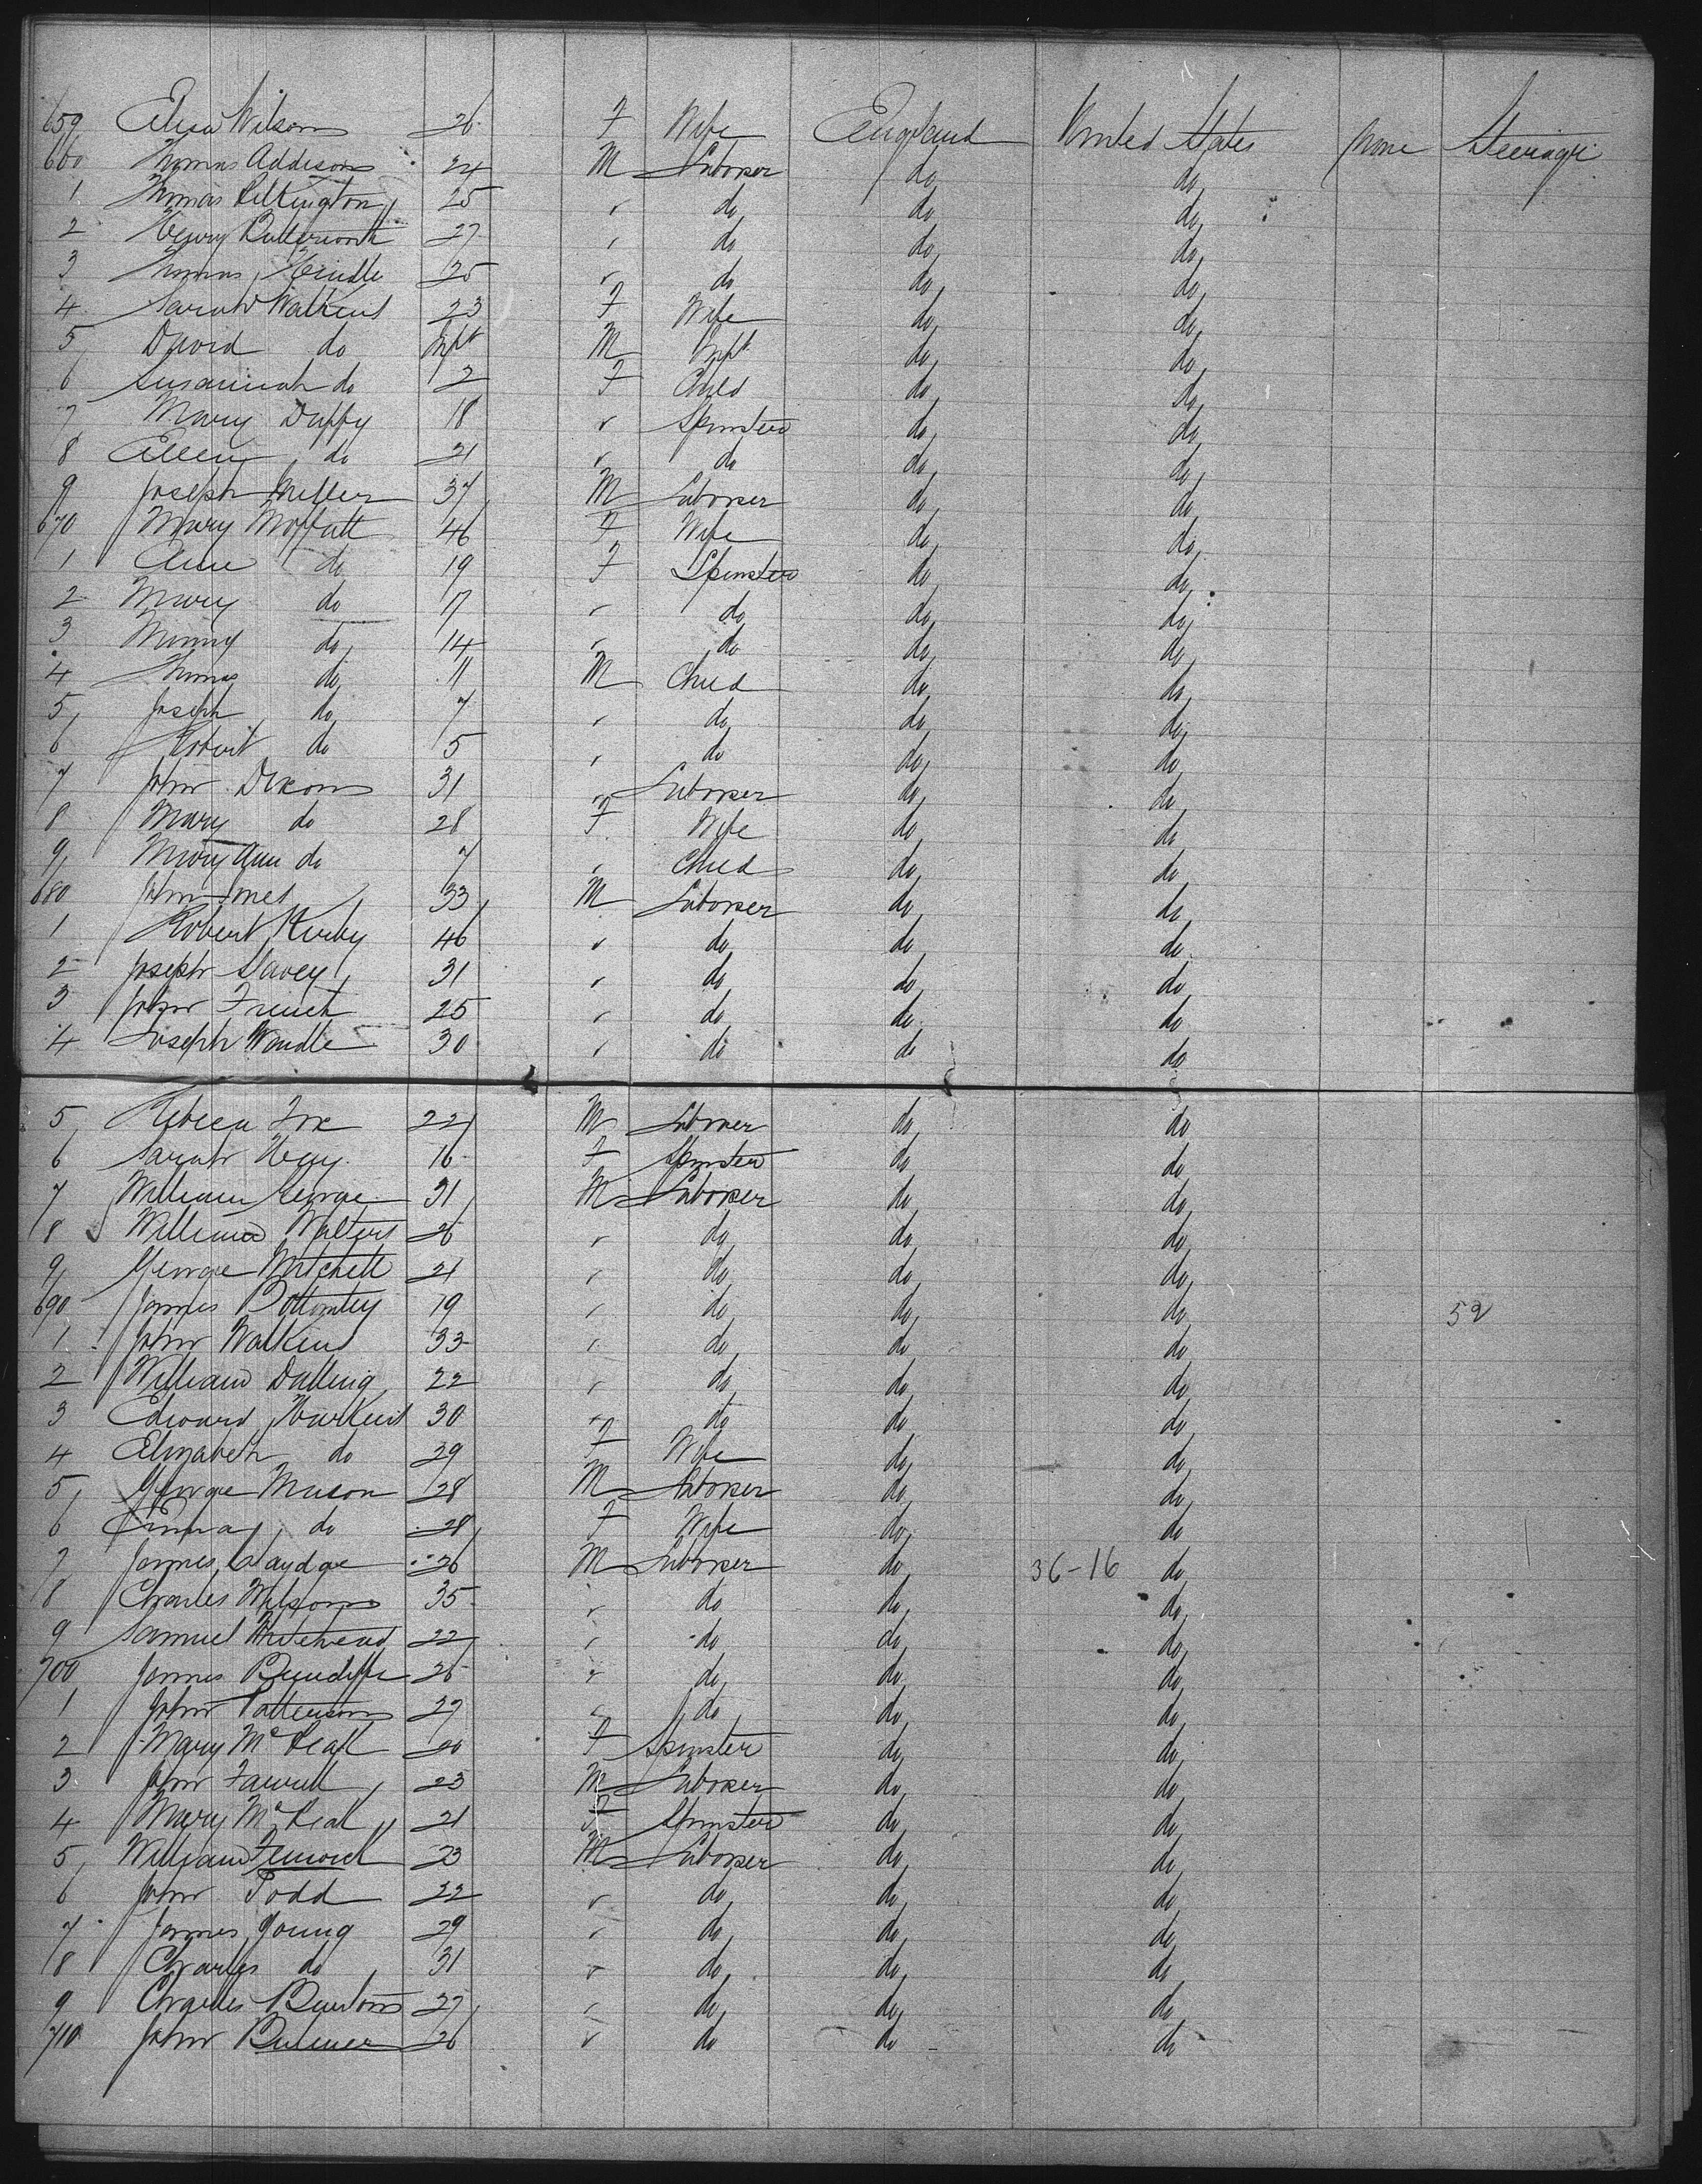 659 Eliza Wilson 26 F Wife England United States None Steerage
660 Thomas Addison 24 M Laborer do do
1 Thomas Pilkington 25 " do do do
2 Henry Butterworth 27 " do do do
3 Thomas Hindle 25 " do do do
4 Sarah Watkins 23 F Wife do do
5 David do Inft M Inft do do
6 Susannah do 2 F Child do do
7 Mary Duffy 18 " Spinster do do
8 Ellen do 21 " do do do
9 Joseph Miller 37 M Laborer do do
670 Mary Moffatt 46 F Wife do do
1 Ann do 19 F Spinster do do
2 Mary do 17 " do do do
3 do 14 " do do do
4 Thomas do 11 M Child do do
5 Joseph do 7 " do do do
6 Robert do 5 " do do do
7 John Dixon 31 " Laborer do do
8 Mary do 28 F Wife do do
9 Mary Ann do 7 " Child do do
680 John 33 M Laborer do do
1 Robert Kirby 46 " do do do
2 Joseph 31 " do do do
3 John French 25 " do do do
4 Joseph 30 " do do do
5 Rebecca Fox 22 M Laborer do do
6 Sarah 16 F Spinster do do
7 William George 31 M Laborer do do
8 William Walters 26 " do do do
9 George Mitchell 21 " do do do
690 James Bottomley 19 " do do do 52
1 John Watkins 33 " do do do
2 William Dalling 22 " do do do
3 Edward Harkins 30 " do do do
4 Elizabeth do 29 F Wife do do
5 George Mason 28 M Laborer do do
6 Emma do 28 F Wife do do
7 James 26 M Laborer do 36-16 do
8 Charles Wilson 35 " do do do
9 Samuel Whitehead 22 " do do do
700 James 26 " do do do
1 John Patterson 27 " do do do
2 Mary 20 F Spinster do do
3 John 23 M Laborer do do
4 Mary 21 F Spinster do do
5 William Fenwick 23 M Laborer do do
6 John Todd 22 " do do do
7 James Young 29 " do do do
8 Charles do 31 " do do do
9 Charles Burton 27 " do do do
710 John Bulmer 26 " do do do